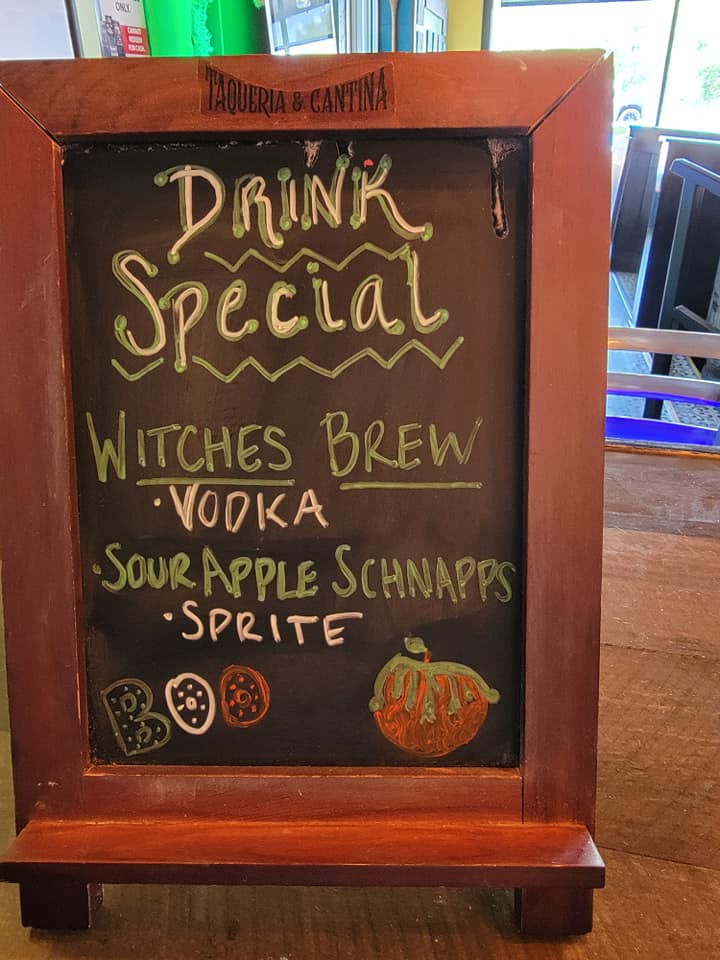 ONLY.
TAQUERIA & CANTINA
DRINK
Special
WITCHES BREW
·VODKA
·SOUR APPLE SCHNAPPS
·SPRITE
BOO